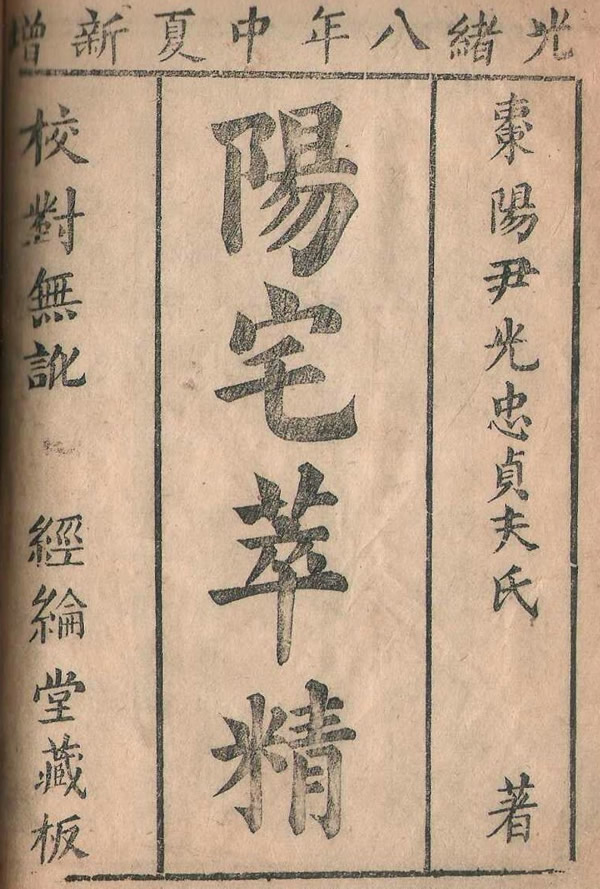 光緒八年中夏新增
棗陽尹光忠貞夫氏 著
陽宅萃精
校對無訛 經綸堂藏板